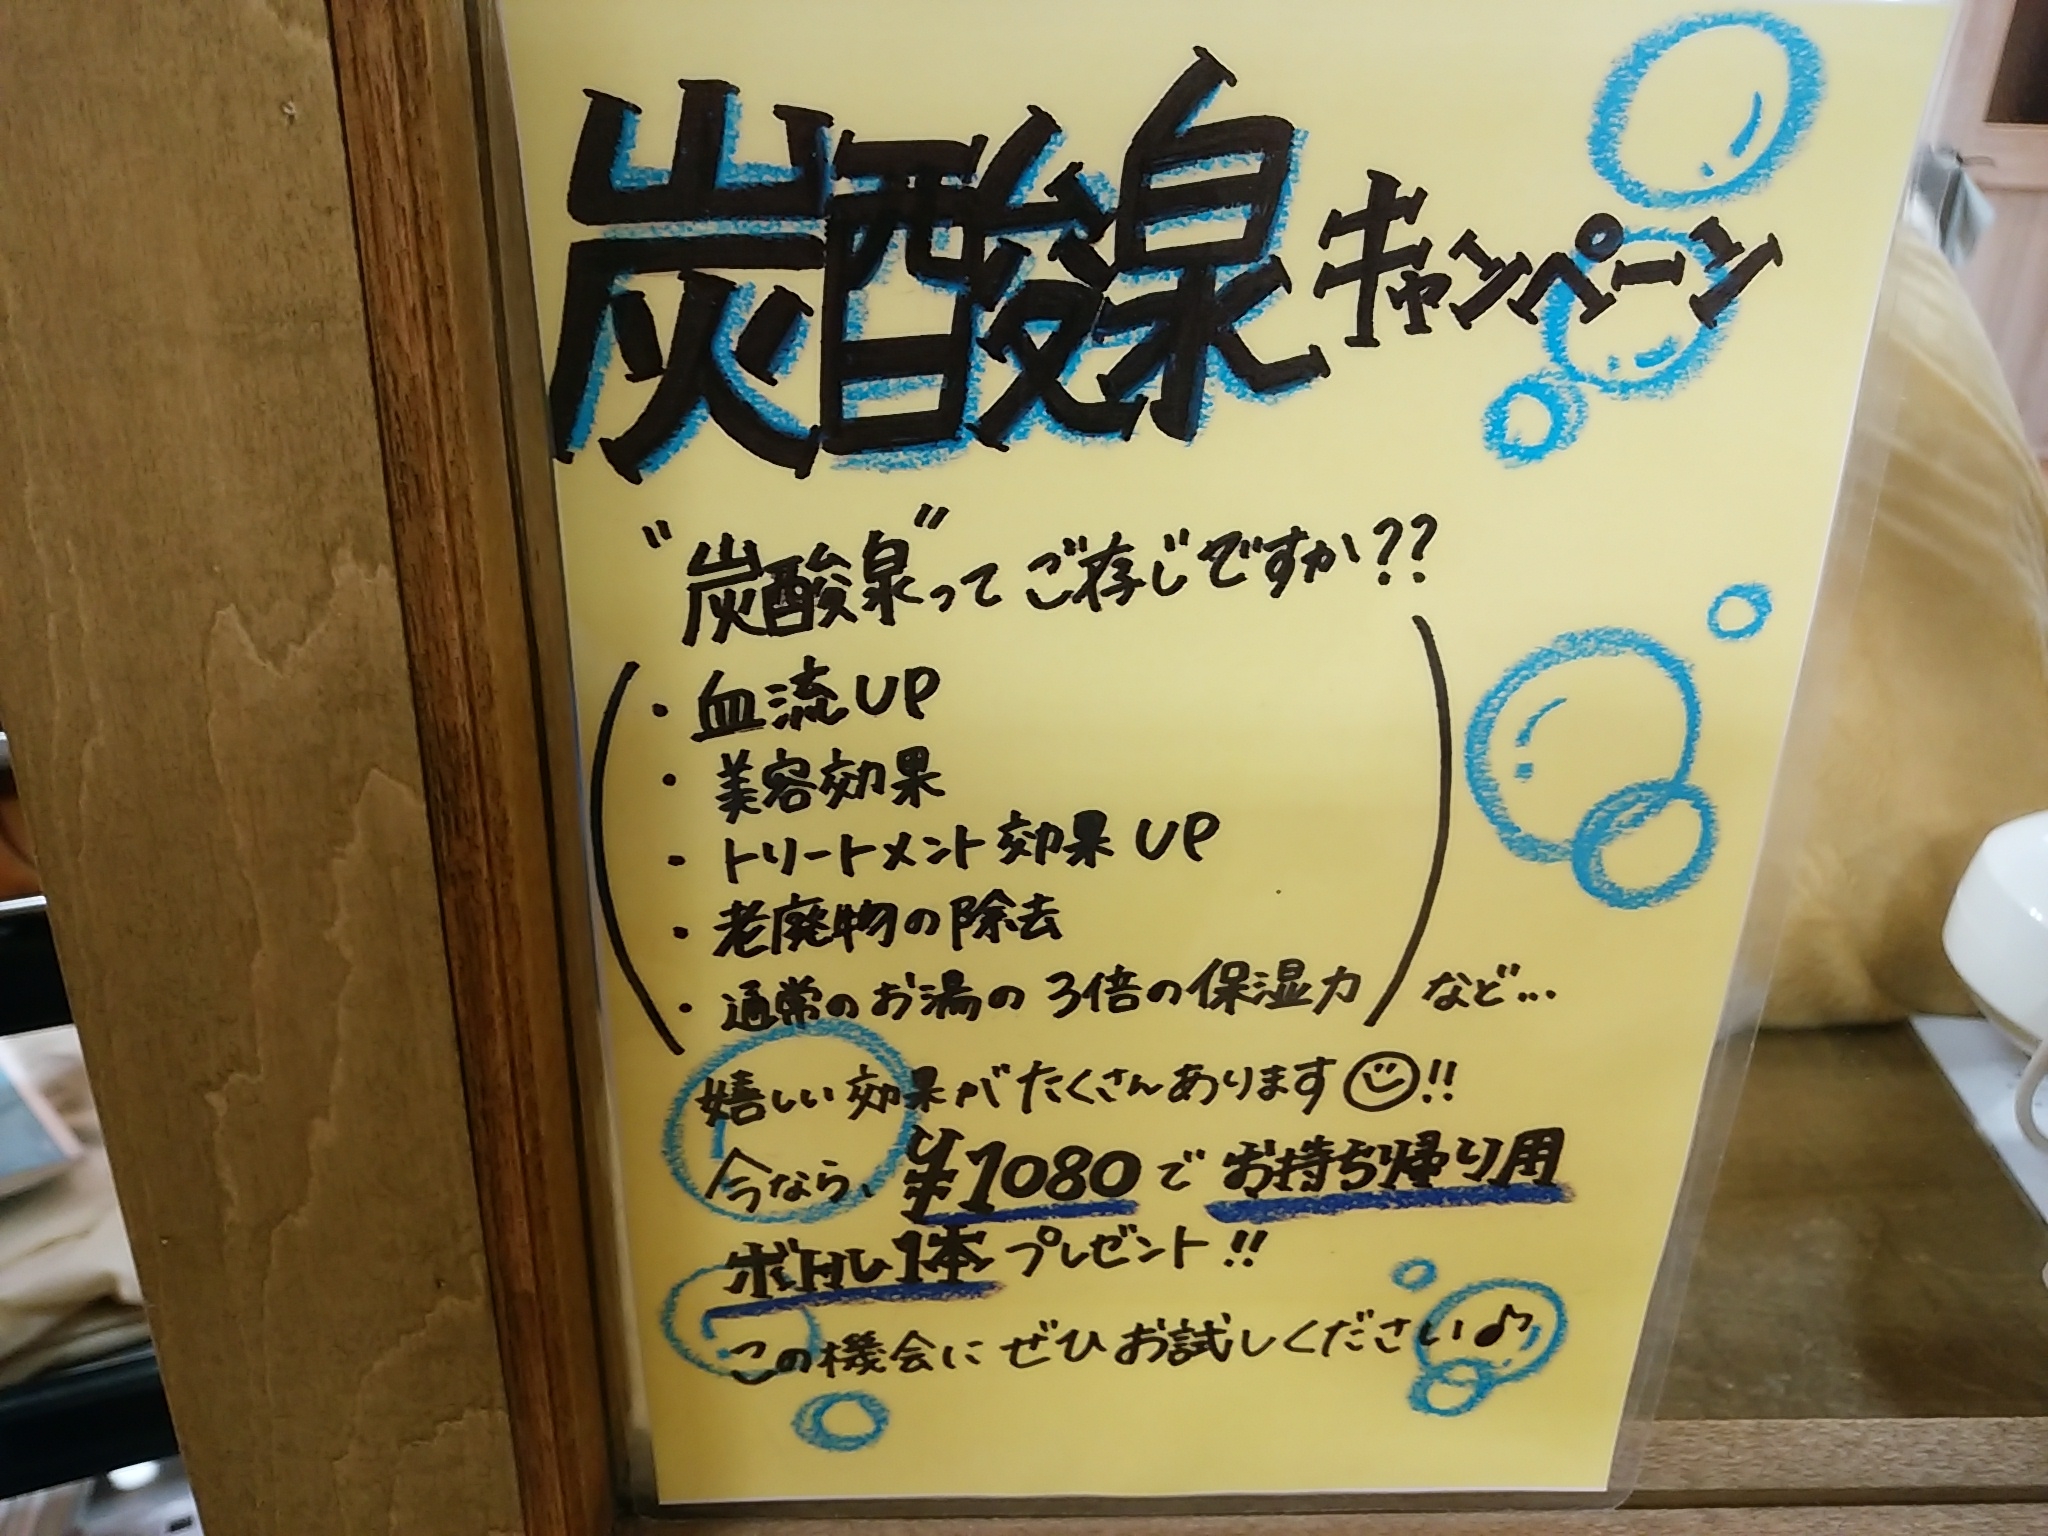 炭酸泉キャンペーン
"炭酸泉"ってご存じですか??
・血流UP
・美容効果
・トリートメント効果UP
・老廃物の除去
・通常のお湯の3倍の保湿力 など...
嬉しい効果がたくさんあります!!
今なら、¥1080でお持ち帰り用
ボトル1本プレゼント!!
この機会にぜひお試しください♪